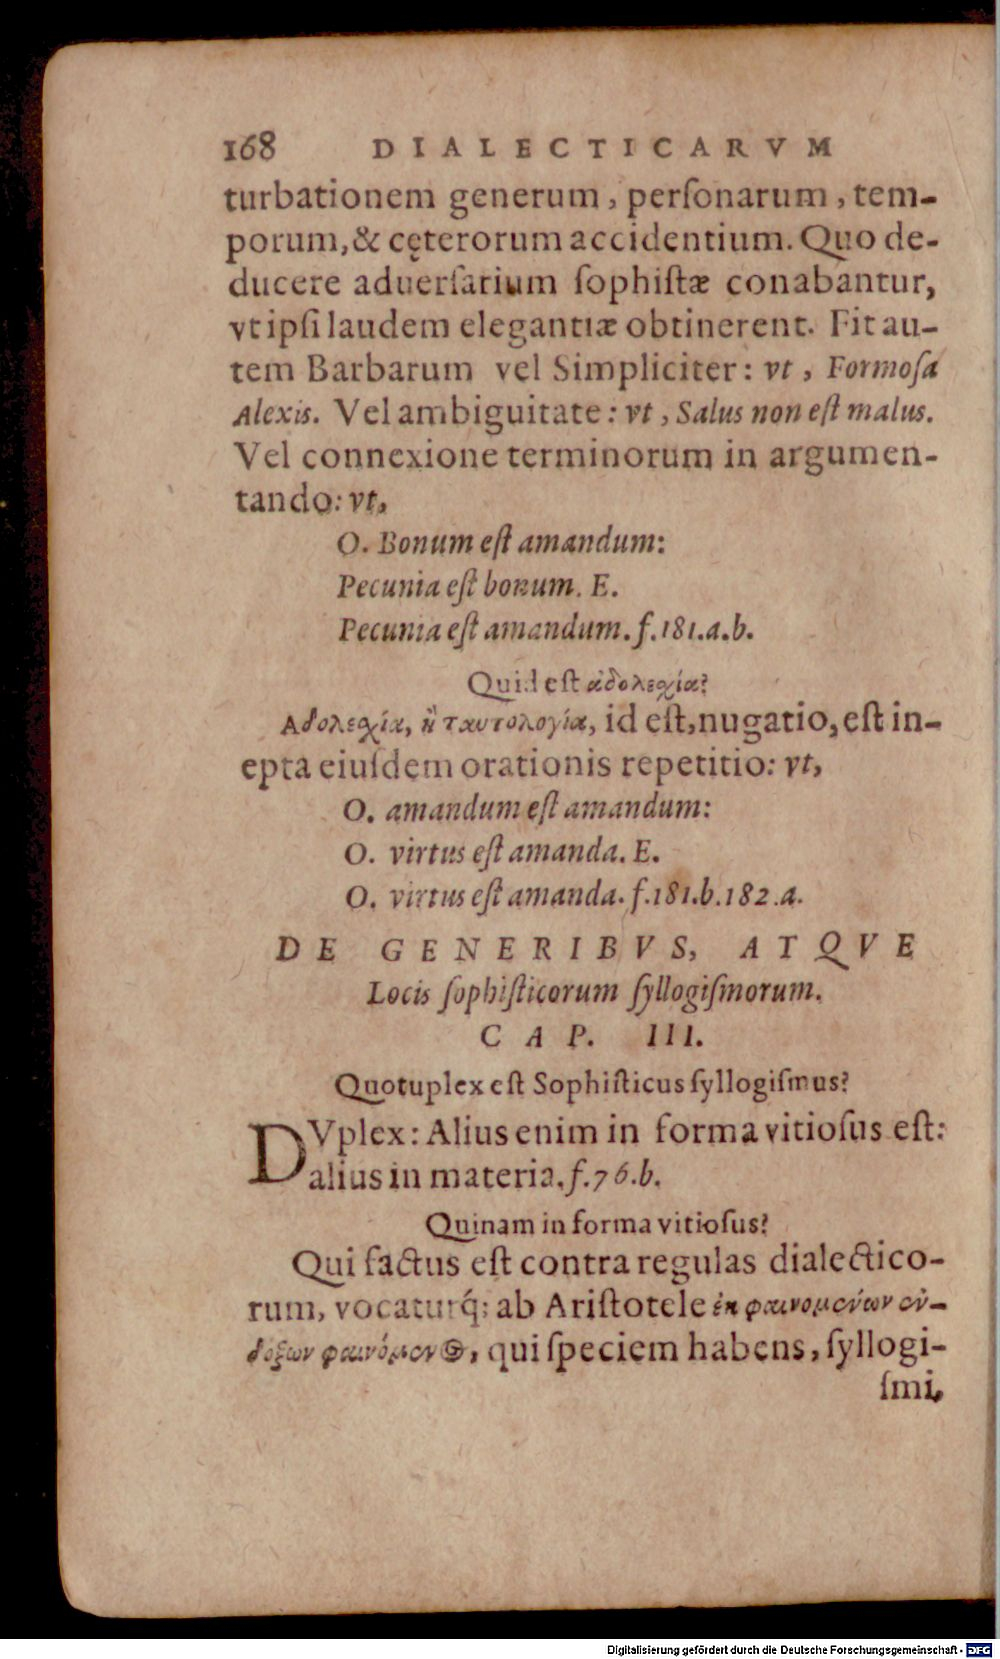 168 DIALECTICARVM
turbationem generum, perſonarum, tem-
porum, & cęterorum accidentium. Quo de-
ducere aduerſarium ſophiſtæ conabantur,
vt ipſi laudem elegantiæ obtinerent. Fit au-
tem Barbarum vel Simpliciter: vt, Formoſa
Alexis. Vel ambiguitate: vt, Salus non eſt malus.
Vel connexione terminorum in argumen-
tando: vt,
O. Bonum eſt amandum:
Pecunia eſt bonum. E.
Pecunia eſt amandum. f.181.a.b.
Quid eſt ἀδολεχία?
Αδολεχία, ἢ ταυτολογία, id eſt, nugatio, eſt in-
epta eiuſdem orationis repetitio: vt,
O. amandum eſt amandum:
O. virtus eſt amanda. E.
O. virtus eſt amanda. f.181.b.182.a.
DE GENERIBVS, ATQVE
Locis ſophiſticorum ſyllogiſmorum.
CAP. III.
Quotuplex eſt Sophiſticus ſyllogiſmus?
DVplex: Alius enim in forma vitioſus eſt:
alius in materia. f.76.b.
Quinam in forma vitioſus?
Qui factus eſt contra regulas dialectico-
rum, vocaturq́; ab Ariſtotele ἐκ φαινομένων ἐν-
δοξων φαινόμενος, qui ſpeciem habens, ſyllogi-
ſmi,
Digitalisierung gefördert durch die Deutsche Forschungsgemeinschaft - DFG